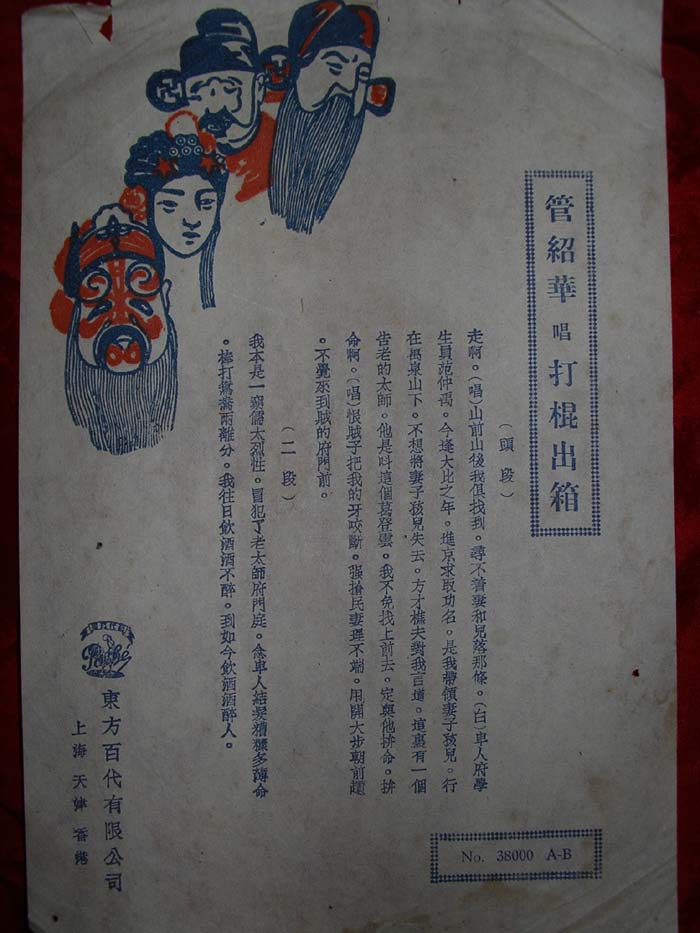 管紹華 唱 打棍出箱
(頭段)
走啊。(唱)山前山後我俱找到。尋不着妻和兒落那條。(白)卑人府學
生員范仲禹。今逢大比之年。進京求取功名。是我帶領妻子孩兒。行
在 山下。不想將妻子孩兒失去。方才樵夫對我言道。這裏有一個
告老的太師。他是呌這個葛登雲。我不免找上前去。定與他拚命。拚
命啊。(唱)恨賊子把我的牙咬斷。强搶民妻理不端。用開大步朝前趲
。不覺來到賊的府門前。
(二段)
我本是一窮儒太烈性。冒犯了老太師府門庭。念卑人結髮糟糠多薄命
。棒打鴛鴦兩離分。我往日飲酒酒不醉。到如今飲酒酒醉人。
Pathé
東方百代有限公司
上海 天津 香港
No. 38000 A-B